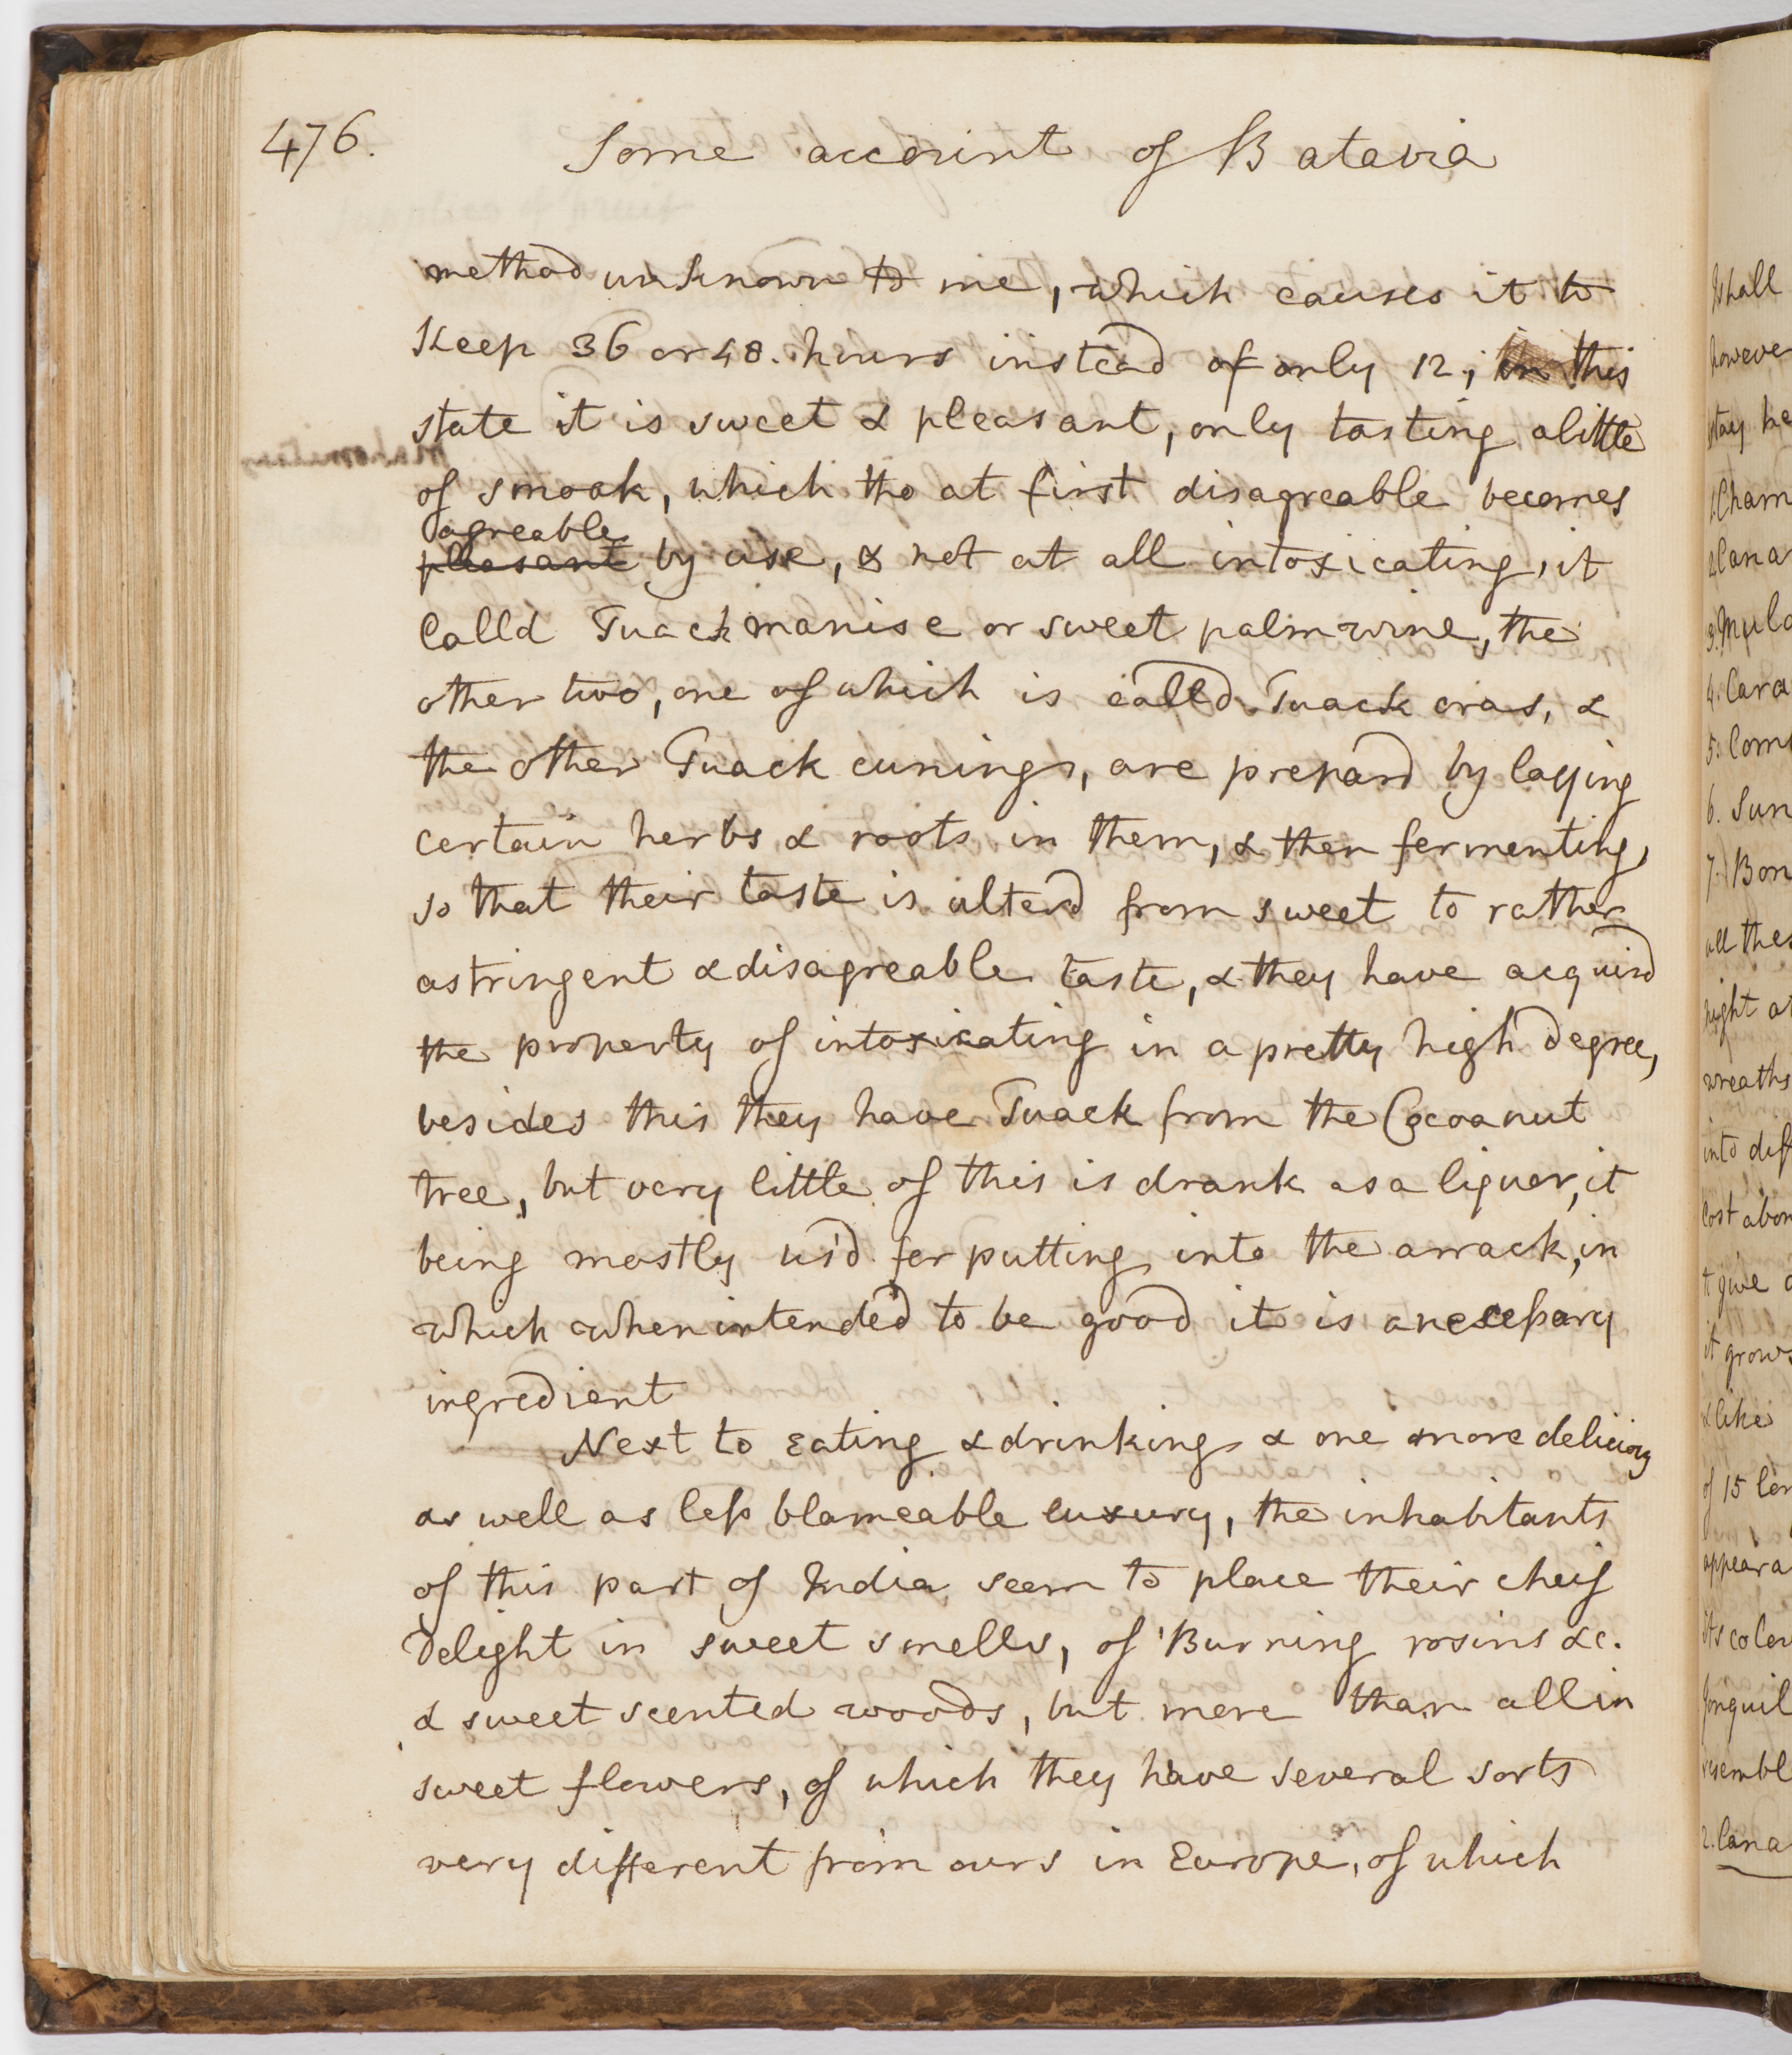 476.
Some account of Batavia
method unknown to me, which causes it to
keep 36 or 48. hours instead of only 12; in this
state it is sweet & pleasant, only tasting a little
of smoak, which tho at first disagreable becomes
agreable
pleasant by use, & not at all intoxicating, it
Calld Tuack manise or sweet palm wine, the
other two, one of which is calld Tuack cras, &
the other Tuack cunings, are prepard by laying
certain herbs & roots in them, & then fermenting,
so that their taste is alterd from sweet to rather
astringent & disagreable taste, & they have acquird
the property of intoxicating in a pretty high degree,
besides this they have Tuack from the Cocoanut
tree, but very little of this is drank as a liquer, it
being mostly us'd for putting into the arrack, in
which when intended to be good it is a nescessary
ingredient
Next to Eating & drinking & one more delicious
as well as less blameable luxury, the inhabitants
of this part of India seem to place their cheif
Delight in sweet smells, of Burning rosins &c.
& sweet scented woods, but more than all in
sweet flowers, of which they have several sorts
very different from ours in Europe, of which
I shall
howeve
stay he
1. Cham
2. Cana
3. Mulo
4. Cara
5. Com
6. Sun
7. Bon
all thes
night a
wreaths
into dif
Cost abou
t give
it grows
& like
of 15  
appeara
its colou
Jonquil
resembl
2. Cana